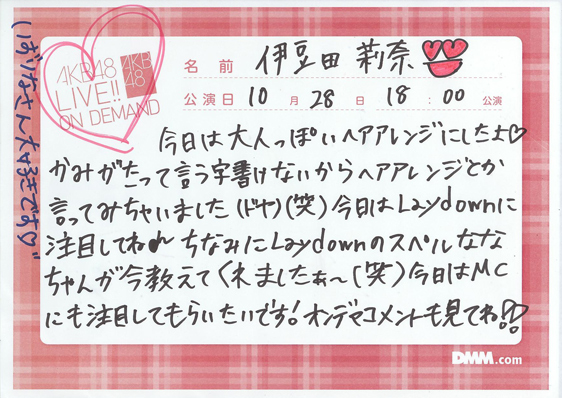 AKB48
LIVE!!
ON DEMAND
AKB
48
名前 伊豆田 莉奈
公演日 10 月 28 日 18 : 00 公演
今日は大人っぽいヘアアレンジにしたよ♡
かみがたって言う字書けないからヘアアレンジとか
言ってみちゃいました(ドヤ)(笑)今日はLaydownに
注目してね♪ちなみにLaydownのスペルなな
ちゃんが今教えてくれましたぁ〜(笑)今日はMC
にも注目してもらいたいです!オンデマコメントも見てね!!
DMM.com
いずりなさん大好きです♡